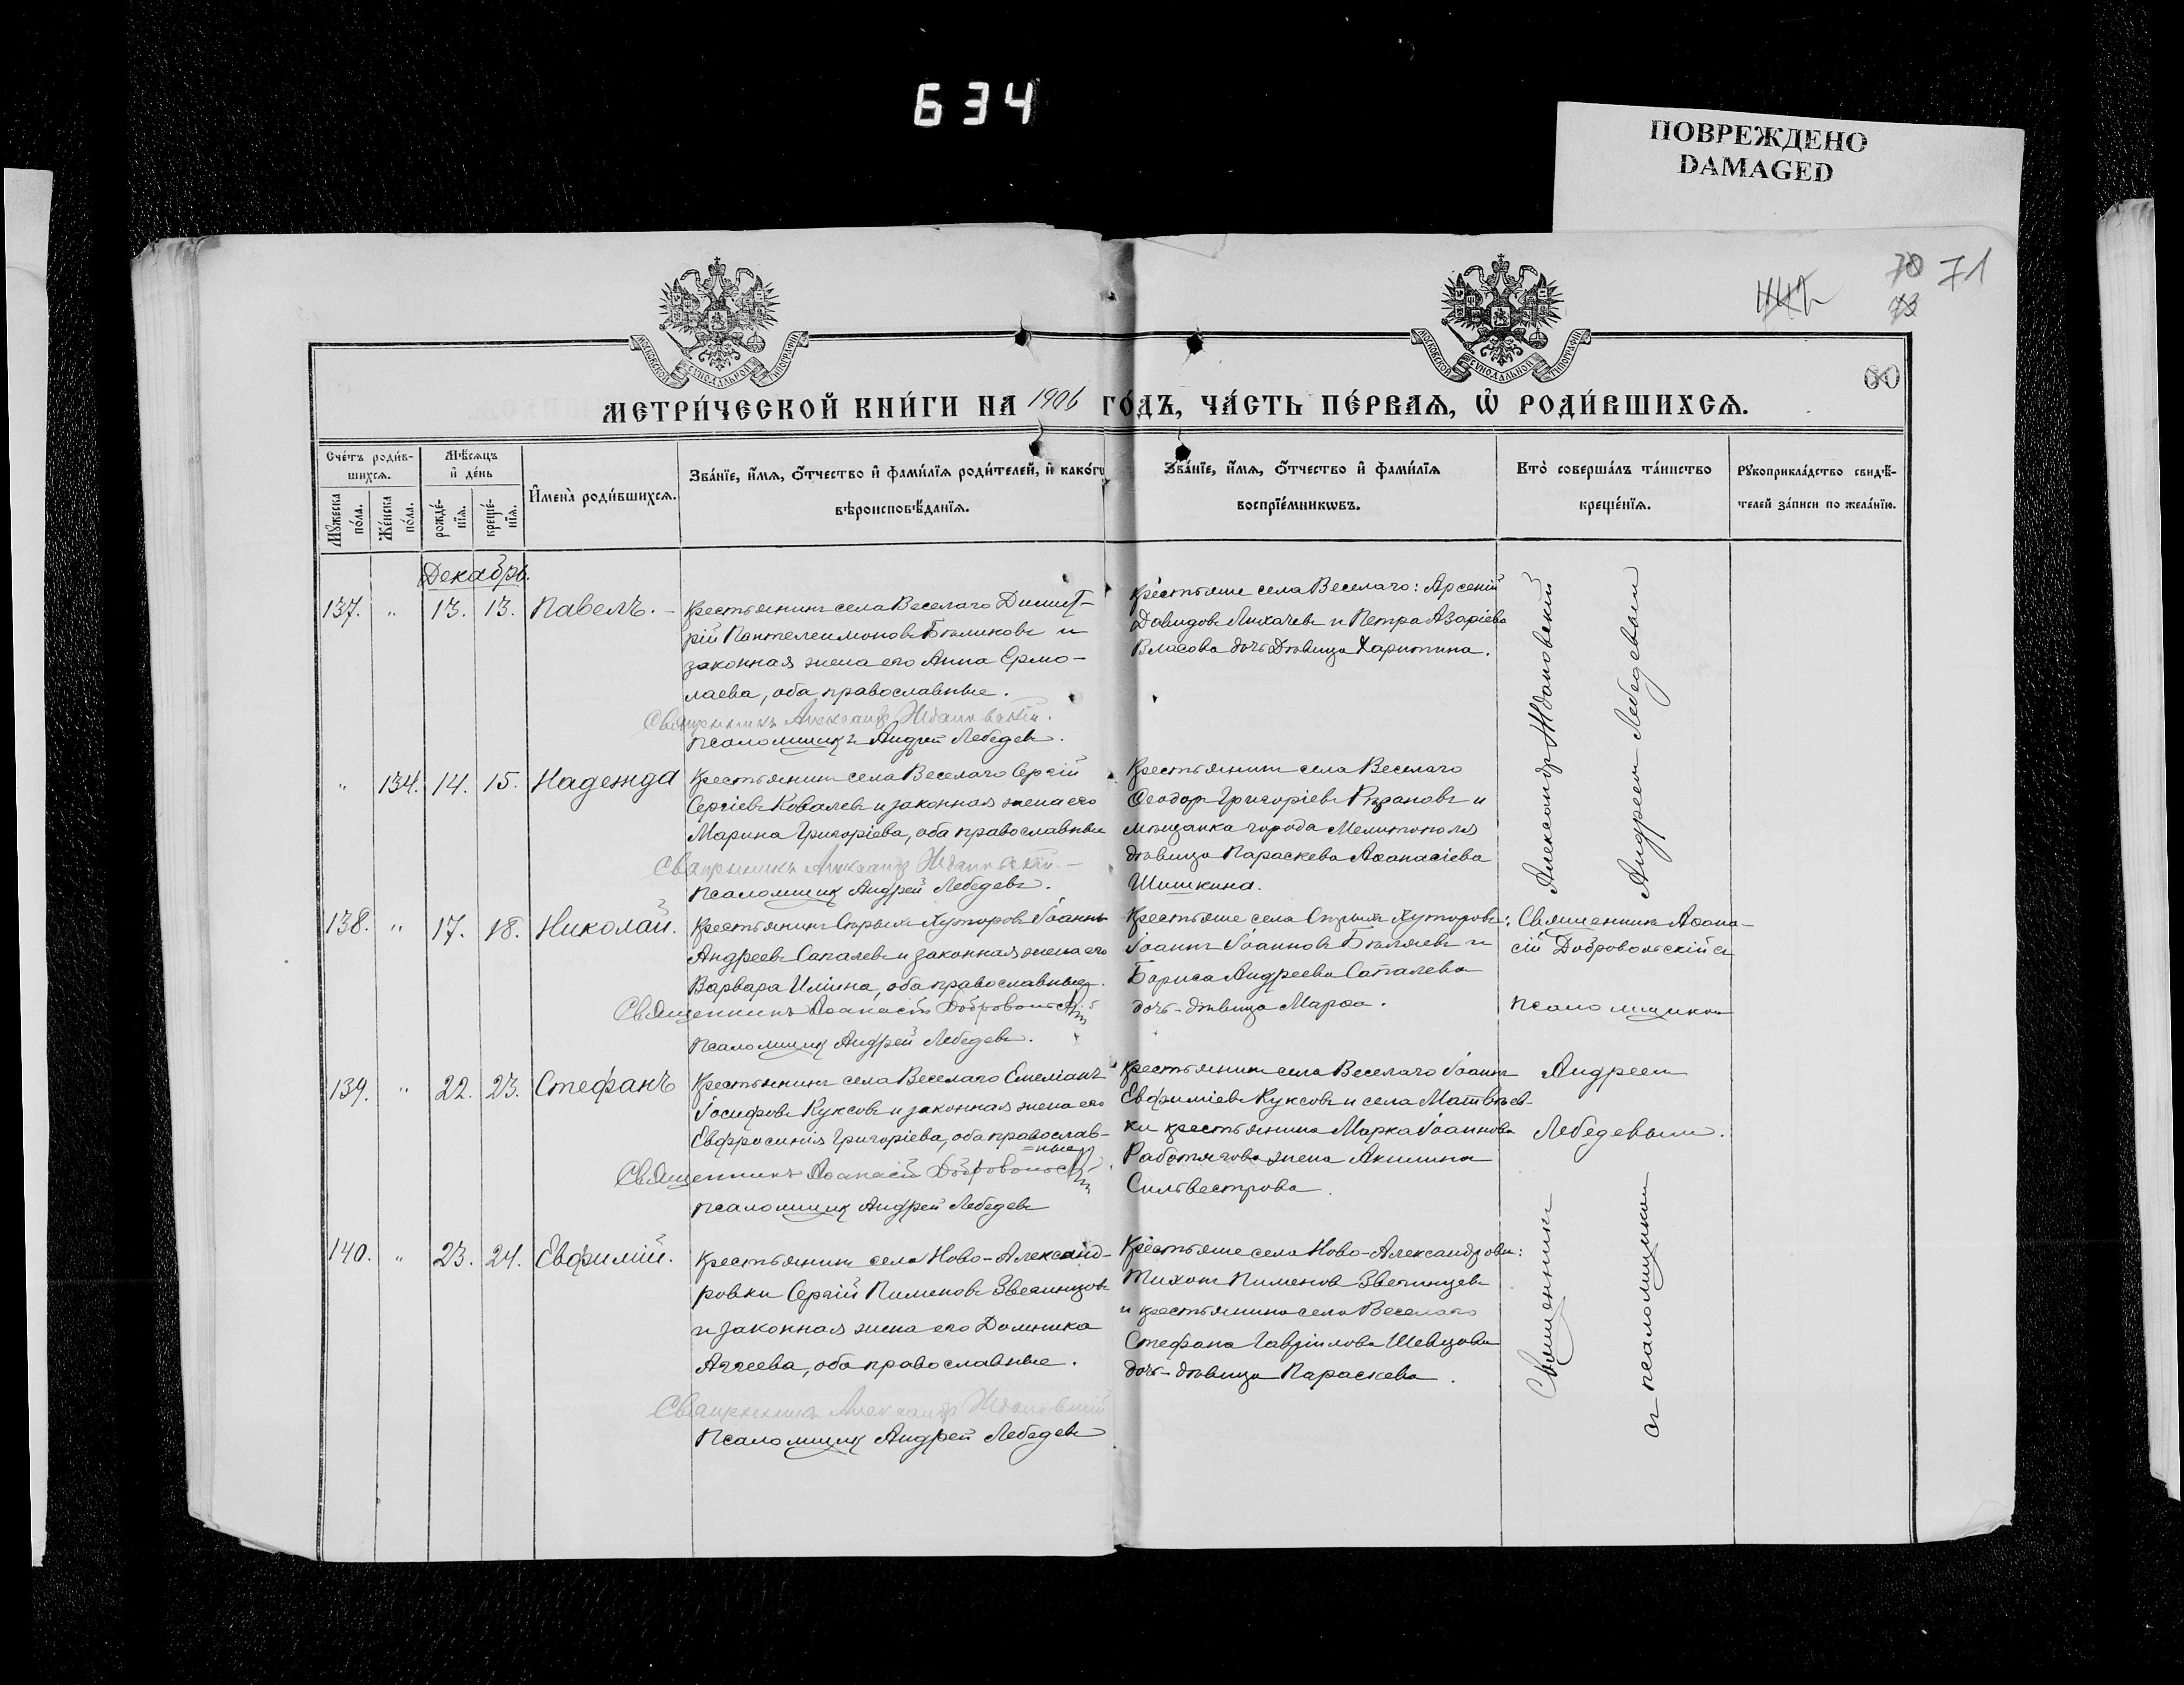 634
ПОВРЕЖДЕНО
DAMAGED
70 71
73
60
МОСКОВСКОЙ СѴНОДАЛЬНОЙ ТИПОГРАФІИ
МОСКОВСКОЙ СѴНОДАЛЬНОЙ ТИПОГРАФІИ
МЕТРИ́ЧЕСКОЙ КНИ́ГИ НА 1906 ГО́ДЪ, ЧА́СТЬ ПЕ́РВАѦ, Ѡ҆ РОДИ́ВШИХСѦ.
Сче́тъ роди́в-
шихсѧ.
Мꙋ́жеска по́ла.
Же́нска по́ла.
Мѣ́сѧцъ
и҆ де́нь
рожде́-
нїѧ.
креще́-
нїѧ.
И҆мена̀ роди́вшихсѧ.
Зва́нїе, и҆́мѧ, ѻ҆́тчество и҆ фами́лїѧ роди́телей, и҆ како́гѡ
вѣроисповѣ́данїѧ.
Зва́нїе, и҆́мѧ, ѻ҆́тчество и҆ фами́лїѧ
воспрїе́мникѡвъ.
Кто̀ соверша́лъ та́инство
креще́нїѧ.
Рꙋкоприкла́дство свидѣ́-
телей за́писи по жела́нїю.
Декабрь.
137. „ 13. 13. Павелъ. –
Крестьянинъ села Веселаго Димит-
рій Пантелеимоновъ Бѣликовъ и
законная жена его Анна Ермо-
лаева, оба православные.
Священникъ Александръ Ждановскій.
Псаломщикъ Андрей Лебедевъ.
Крестьяне села Веселаго: Арсеній
Давидовъ Лихачевъ и Петра Азаріева
Власова дочь дѣвица Харитина.
„ 134. 14. 15. Надежда
Крестьянинъ села Веселаго Сергій
Сергіевъ Ковалевъ и законная жена его
Марина Григоріева, оба православные
Священникъ Александръ Ждановскій. –
Псаломщикъ Андрей Лебедевъ.
Крестьянинъ села Веселаго
Ѳеодоръ Григоріевъ Рѣзановъ и
мѣщанка города Мелитополя
дѣвица Параскева Аѳанасіева
Шишкина.
Священники Александръ Ждановскій
съ псаломщикомъ Андреемъ Лебедевымъ
138. „ 17. 18. Николай.
Крестьянинъ Сѣрыхъ Хуторовъ Іоаннъ
Андреевъ Сапалевъ и законная жена его
Варвара Иліина, оба православные.
Священникъ Аѳанасій Добровольскій
Псаломщикъ Андрей Лебедевъ.
Крестьяне села Сѣрыхъ Хуторовъ:
Іоаннъ Іоанновъ Бѣляевъ и
Бориса Андреева Сапалева
дочь-дѣвица Марѳа.
Священникъ Аѳана-
сій Добровольскій съ
псаломщикомъ
Андреемъ
Лебедевымъ.
139. „ 22. 23. Стефанъ
Крестьянинъ села Веселаго Емеліанъ
Іосифовъ Куксовъ и законная жена его
Евфросинія Григоріева, оба православ-
=ные
Священникъ Аѳанасій Добровольскій
Псаломщикъ Андрей Лебедевъ
Крестьянинъ села Веселаго Іоаннъ
Евфиміевъ Куксовъ и села Матвѣев-
ки крестьянина Марка Іоаннова
Работягова жена Акилина
Сильвестрова.
140. „ 23. 24. Евфимій.
Крестьянинъ села Ново-Александ-
ровки Сергій Пименовъ Звегинцовъ
и законная жена его Домника
Аггеева, оба православные.
Священникъ Александръ Ждановскій
Псаломщикъ Андрей Лебедевъ
Крестьяне села Ново-Александровки:
Тихонъ Пименовъ Звегинцевъ
и крестьянина села Веселаго
Стефана Гавріилова Шевцова
дочь-дѣвица Параскева.